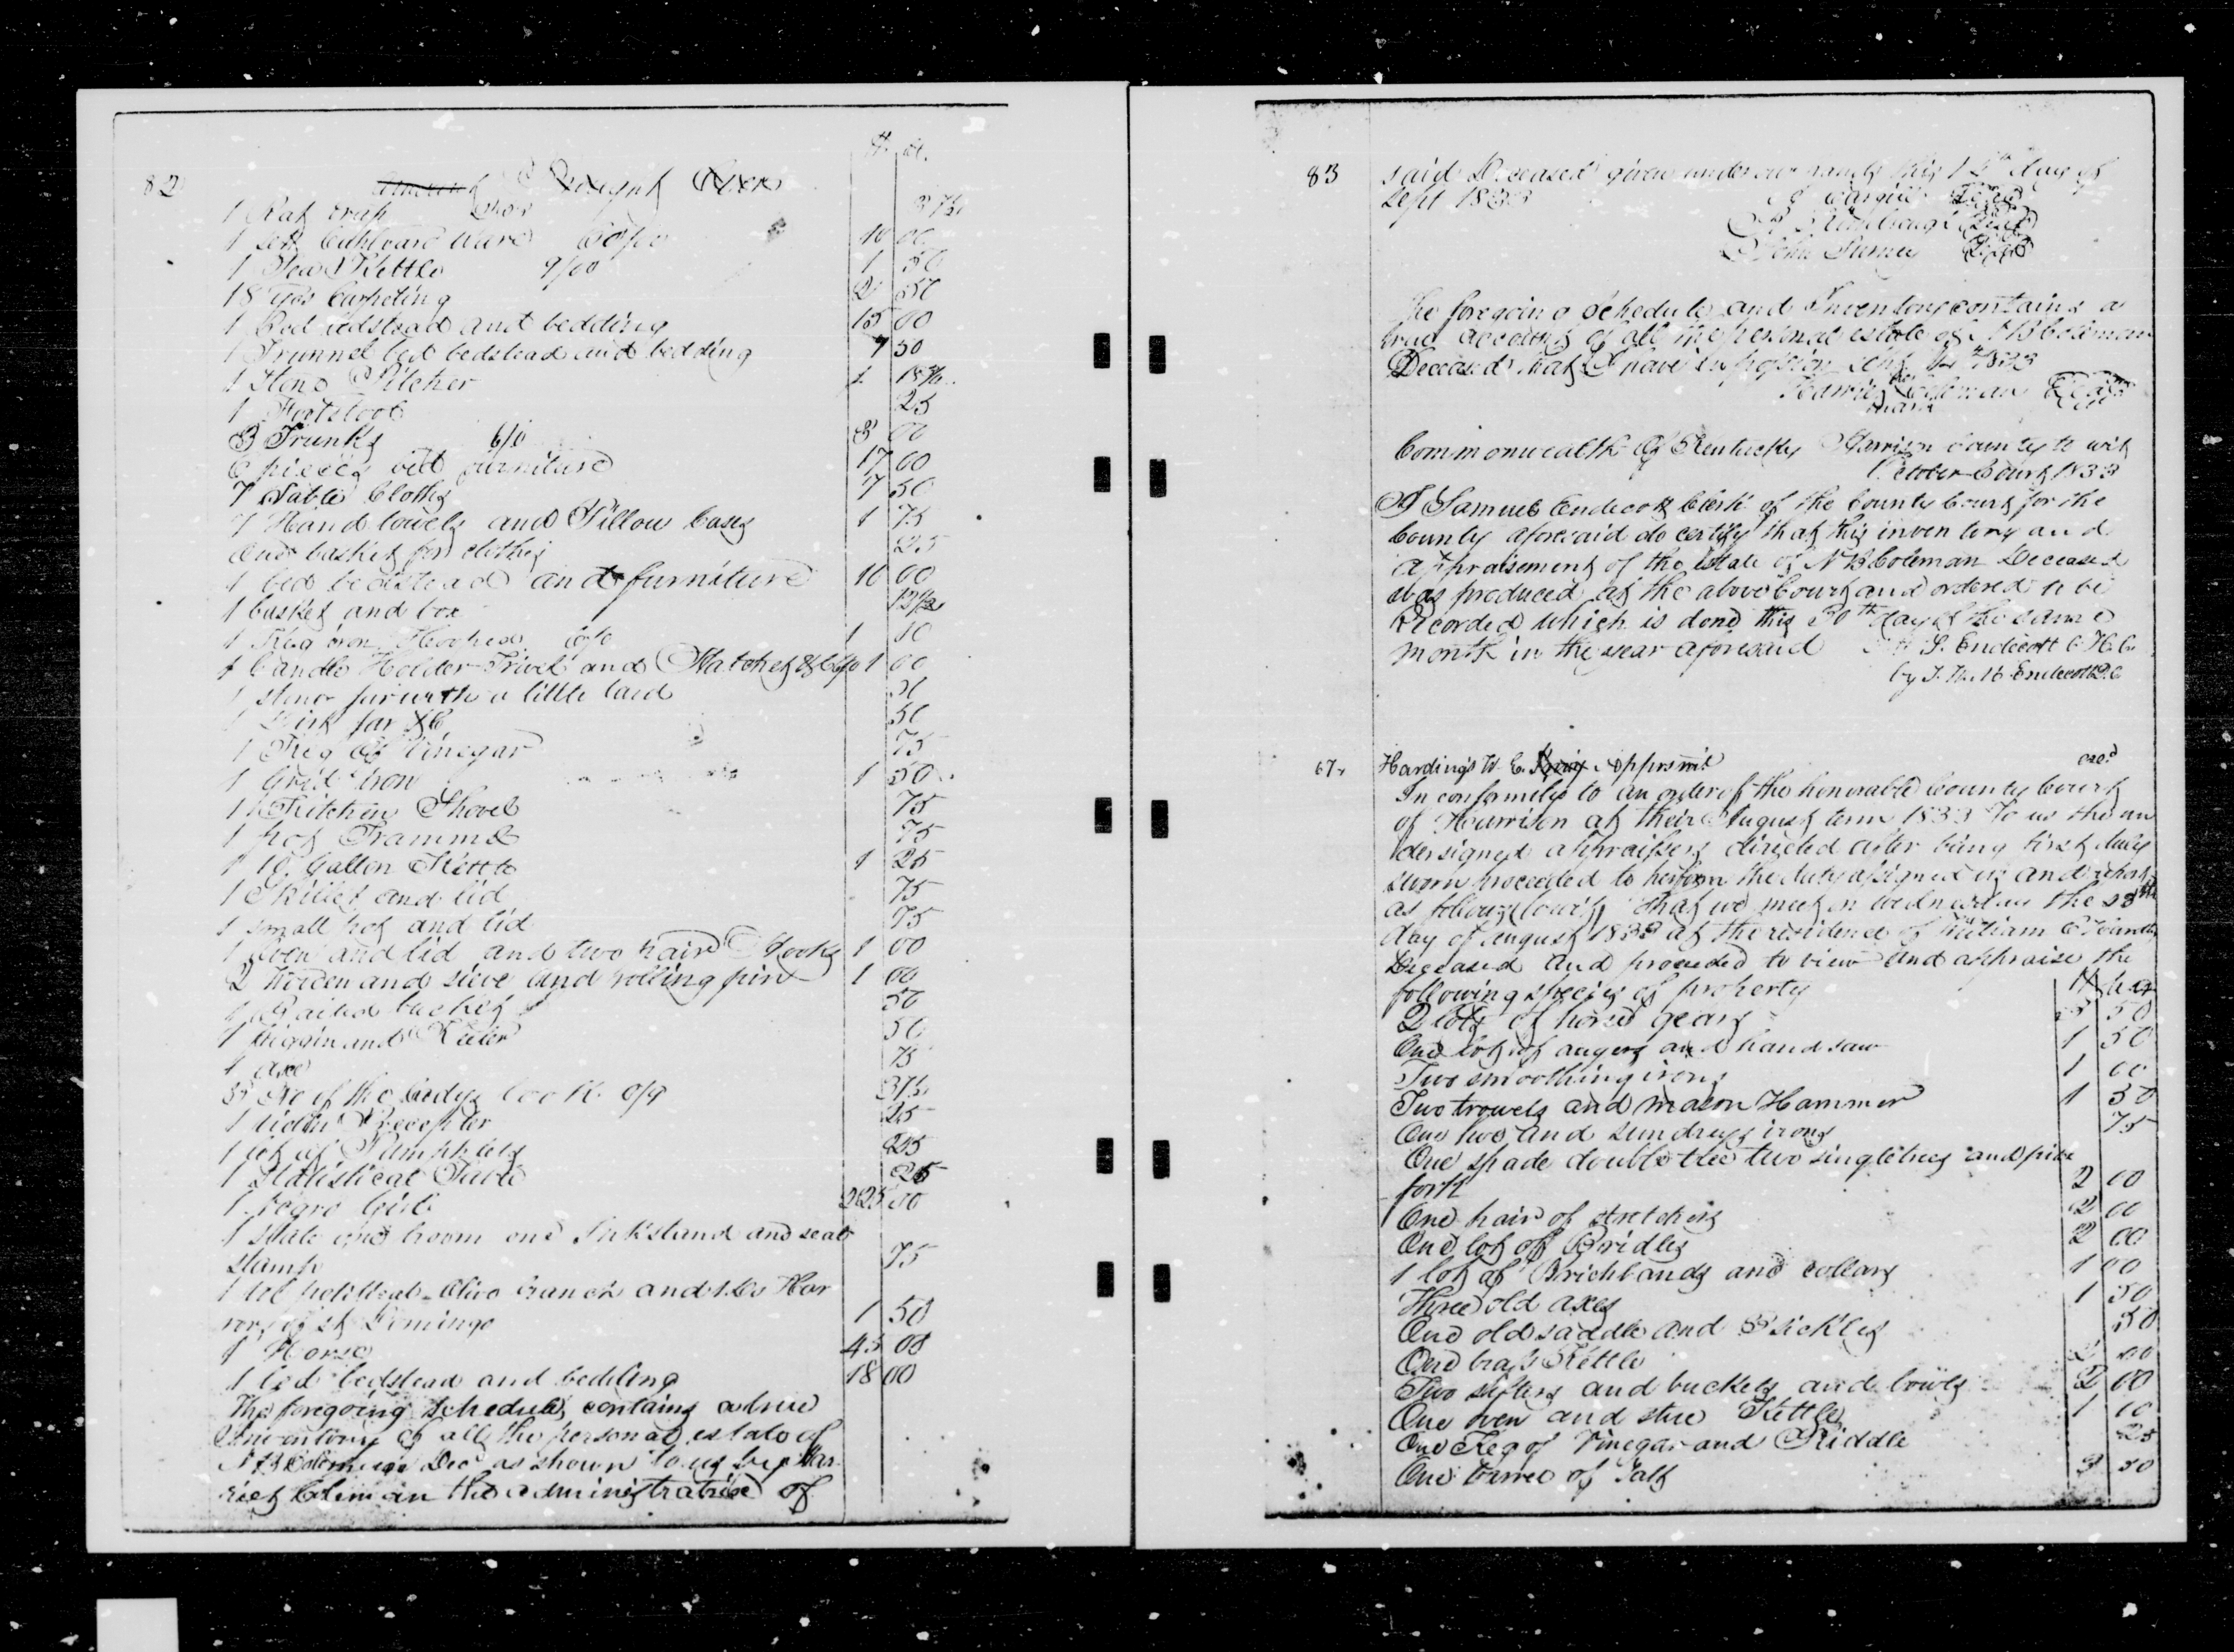 $ ct.
82 Amount Brought Over
1 Rat trap 37½
1 sett Cupboard Ware 60/00 10 00
1 Tea Kettle 9/00 1 50
18 yds Carpeting 2 50
1 Bed bedstead and bedding 15 00
1 Trunnel bed bedstead and bedding 7 50
1 Stone Pitcher 1 18¾
1 Footstool 25
3 Trunks 6/0 3 00
6 pieces bed furniture 17 00
7 Table Cloths 7 50
7 Hand towels and Pillow Cases 1 75
One basket for clothes 25
1 bed bedstead and furniture 10 00
1 basket and box 12½
1 Flat iron 1
1 Candle Holder Trivet and Hatchet 1 00
1 stone jar with a little lard 50
1 jar 50
1 Keg of Vinegar 75
1 Grid iron 1 50
1 Kitchin Shovel 75
1 pot Trammel 75
1 10 Gallon Kettle 1 25
1 Skillet and lid 75
1 small pot and lid 75
1 Oven and lid and two pair Hooks 1 00
2 and sieve and rolling pin 1 00
1 bucket 50
1 piggin and 50
1 axe 75
3 No of the Ladys book 0/9 37½
1 25
1 lot of Pamphlets 25
1 Statistical 25
1 Negro Girl 225 00
1 Slate one broom one Inkstand and seal
stamp 75
1 Vol political Olive branch and 1 Do Hor
rors of St Domingo 1 50
1 Horse 45 00
1 bed bedstead and bedding 18 00
The foregoing schedule contains a true
Inventory of all the personal estate of
N B Coleman Decd as shown to us by Har
riet Coleman the administratrix of
83 said Deceased given under our hands this day of
Sept 1833 Seal
Seal
John Seal
The foregoing Schedule and Inventory contains a
true account of all the personal estate of N B Coleman
Deceased that I have in possession Sept 1833
Coleman Seal
mark
Commonwealth of Kentucky Harrison County to wit
October Court 1833
I Samuel Endecott Clerk of the County Court for the
County aforesaid do certify that this inventory and
appraisement of the Estate of N B Coleman Deceased
was produced at the above Court and ordered to be
Recorded which is done this 30th day of the same
month in the year aforesaid Att S. Endecott C H. C.
by Endecott D.C
67. Hardings W. E. Apprsmt
In conformity to an order of the honorable County Court
of Harrison at their August term 1833 To us the un
dersigned appraisers directed after being first duly
sworn proceeded to perform the duty assigned us and report
as follows (towit) That we meet on Wednesday the 28th
day of August 1833 at the residence of William E
Deceased and proceeded to view and appraise the
following species of property
2 lots of horse gears 50
One lot of augers and hand saw 1 50
Two smoothing irons 1 00
Two trowels and mason Hammer 1 50
One hoe and sundrys irons 75
One spade double tree two singletrees and
fork 2 00
One pair of stretchers 2 00
One lot of Bridles 2 00
1 lot of Brichbands and collars 1 00
Three old axes 1 50
One old saddle and 3 sickles 50
One brass Kettle 00
Two sifters and buckets and bowls 2 00
One oven and stue Kettle 1 00
One Keg of Vinegar and Riddle 25
One barrel of Salt 3 50